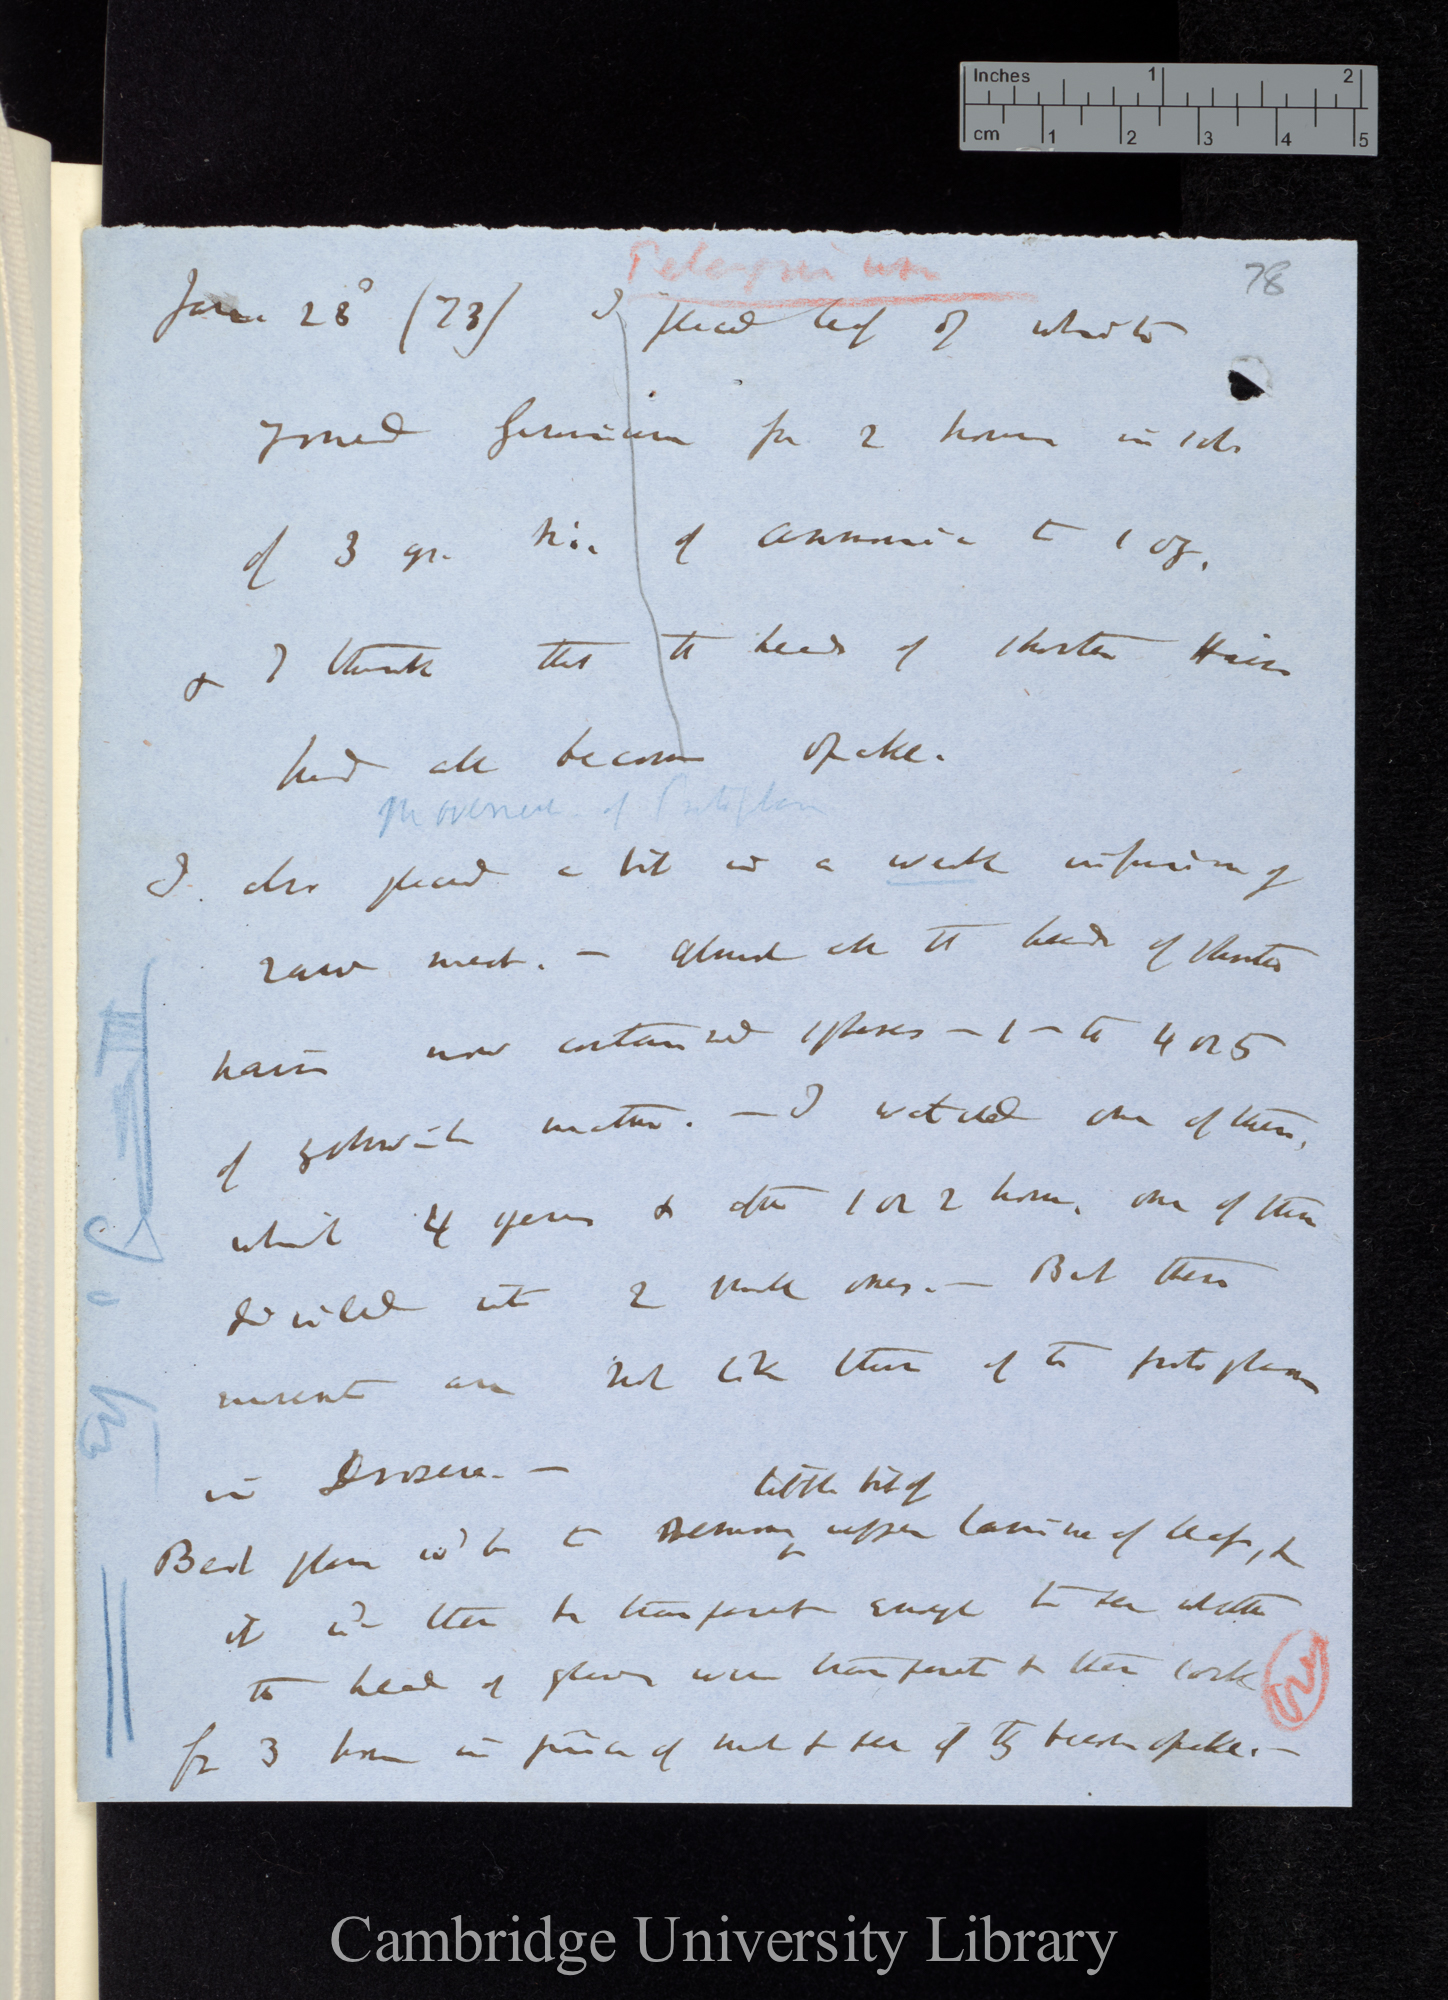 Inches 1 2
cm 1 2 3 4 5
Pelargonium
78
June 28° (73) I placed leaf of white
zoned Geranium for 2 hours in sol.
of 3 gr. Nit. of ammonia to 1 oz.
& I think that the heads of shorter Hairs
had all become opake.
Movement of Protoplasm
I also placed a bit in a weak infusion of
raw meat. — almost all the heads of shorter
hairs now contained spheres — 1 — to 4 or 5
of yellowish matter. — I watched one of them,
which 4 & after 1 or 2 hours, one of them
divided into 2 small ones. — But these
movements are not like those of the protoplasm
in Drosera. —
little bit of
Best plan wd be to Remove upper lamina of leaf, &
it wd then be transparent enough to see whether
the head of glands were transparent & then soak
for 3 hours in juice of meat & see if they become opake. —
Cambridge University Library